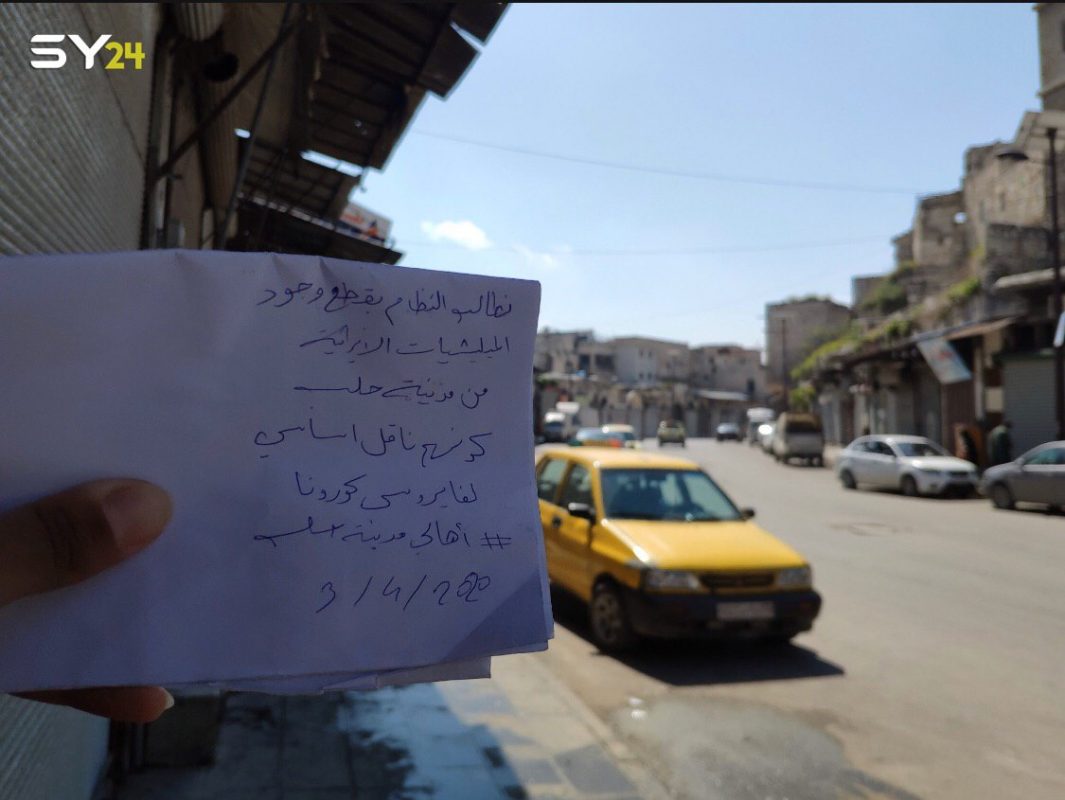 SY24
نطالب النظام بقطع وجود
الميليشيات الايرانية
من مدينة حلب
كونهم ناقل اساسي
لفايروس كورونا
# أهالي مدينة حلب
3/4/2020